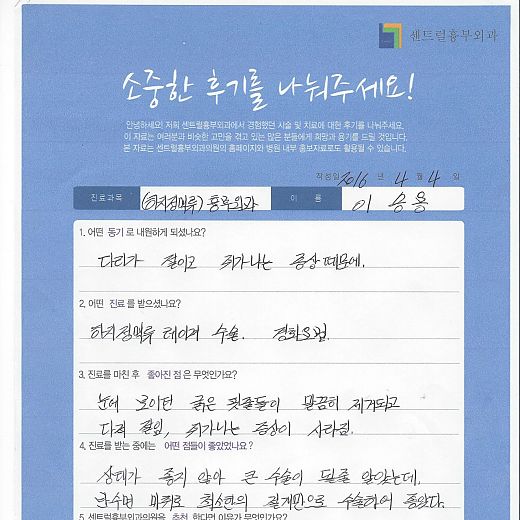 센트럴흉부외과
소중한 후기를 나눠주세요!
안녕하세요! 저희 센트럴흉부외과에서 경험했던 시술 및 치료에 대한 후기를 나눠주세요.
이 자료는 여러분과 비슷한 고민을 겪고 있는 많은 분들에게 희망과 용기를 드릴 것입니다.
본 자료는 센트럴흉부외과의원의 홈페이지와 병원 내부 홍보자료로도 활용될 수 있습니다.
작성일 2016 년 4 월 4 일
진료과목 (하지정맥류) 흉부외과 이 름 이 승용
1. 어떤 동기 로 내원하게 되셨나요?
다리가 절이고 쥐가나는 증상 때문에.
2. 어떤 진료 를 받으셨나요?
하지정맥류 레이저 수술. 경화요법
3. 진료를 마친 후 좋아진 점 은 무엇인가요?
눈에 보이던 굵은 핏줄들이 말끔히 제거되고
다리 절임, 쥐가나는 증상이 사라짐.
4. 진료를 받는 중에는 어떤 점들이 좋았었나요?
상태가 좋지 않아 큰 수술이 필요 했었는데,
반수면 마취로 최소한의 절개만으로 수술하여 좋았다.
5. 센트럴흉부외과의원을 추천 한다면 이유가 무엇인가요?